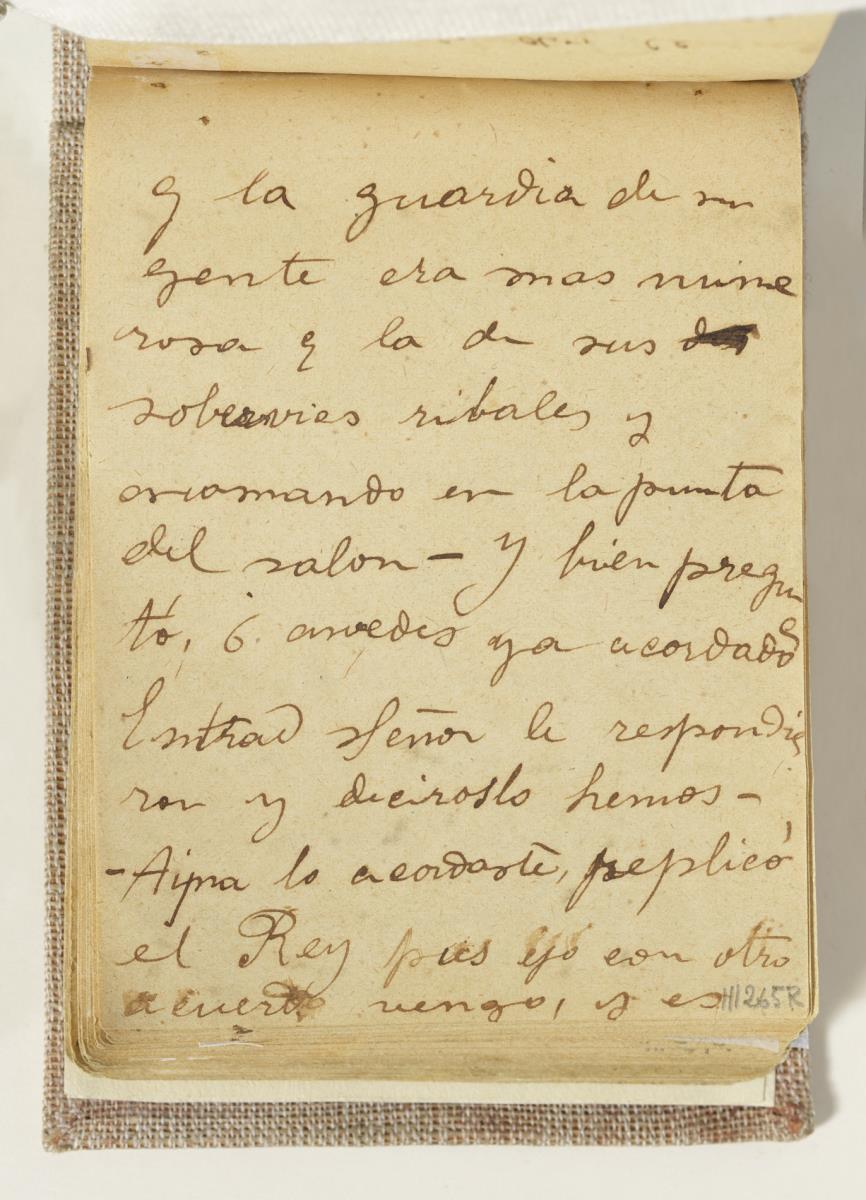 q la guardia de su
gente era mas nume
rosa q la de sus
sobervies ribales y
en la punta
del salon - y bien pregun
tó, ó avedes ya acordado
Entrad señor le respondie
ron y deciroslo hemos -
- Aina lo acordaste, replicó
el Rey pues yo con otro
acuerdo vengo, y es
H1265R